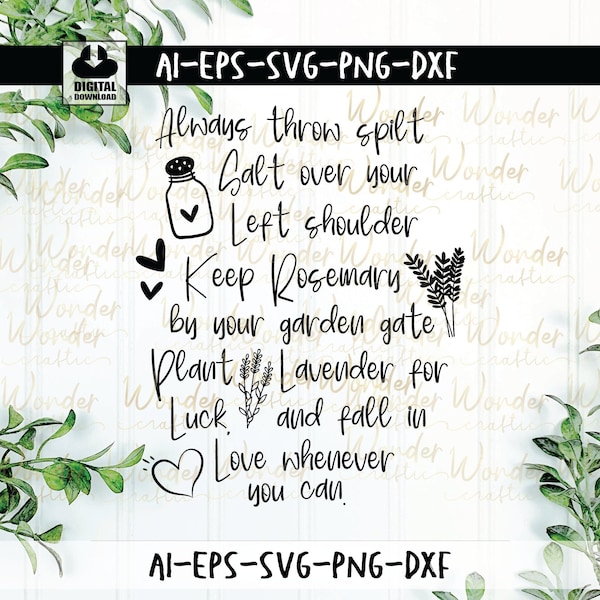 DIGITAL
DOWNLOAD
AI-EPS-SVG-PNG-DXF
Always throw spilt
Salt over your
Left shoulder
Keep Rosemary
by your garden gate
Plant Lavender for
Luck, and fall in
Love whenever
you can.
AI-EPS-SVG-PNG-DXF
Wonder
craftic